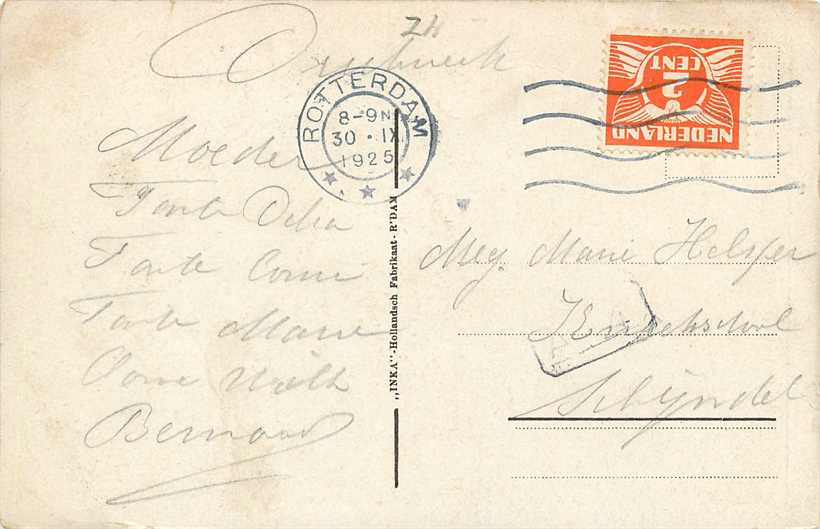 Zh
ROTTERDAM
8-9N
30 · IX
1925
NEDERLAND
2
CENT
Moeder
Tante
Tante Corrie
Tante Marie
Oome
Bernard
„INKA"-Hollandsch Fabrikaat - R'DAM
Mej. Marie Helsper
Schijndel